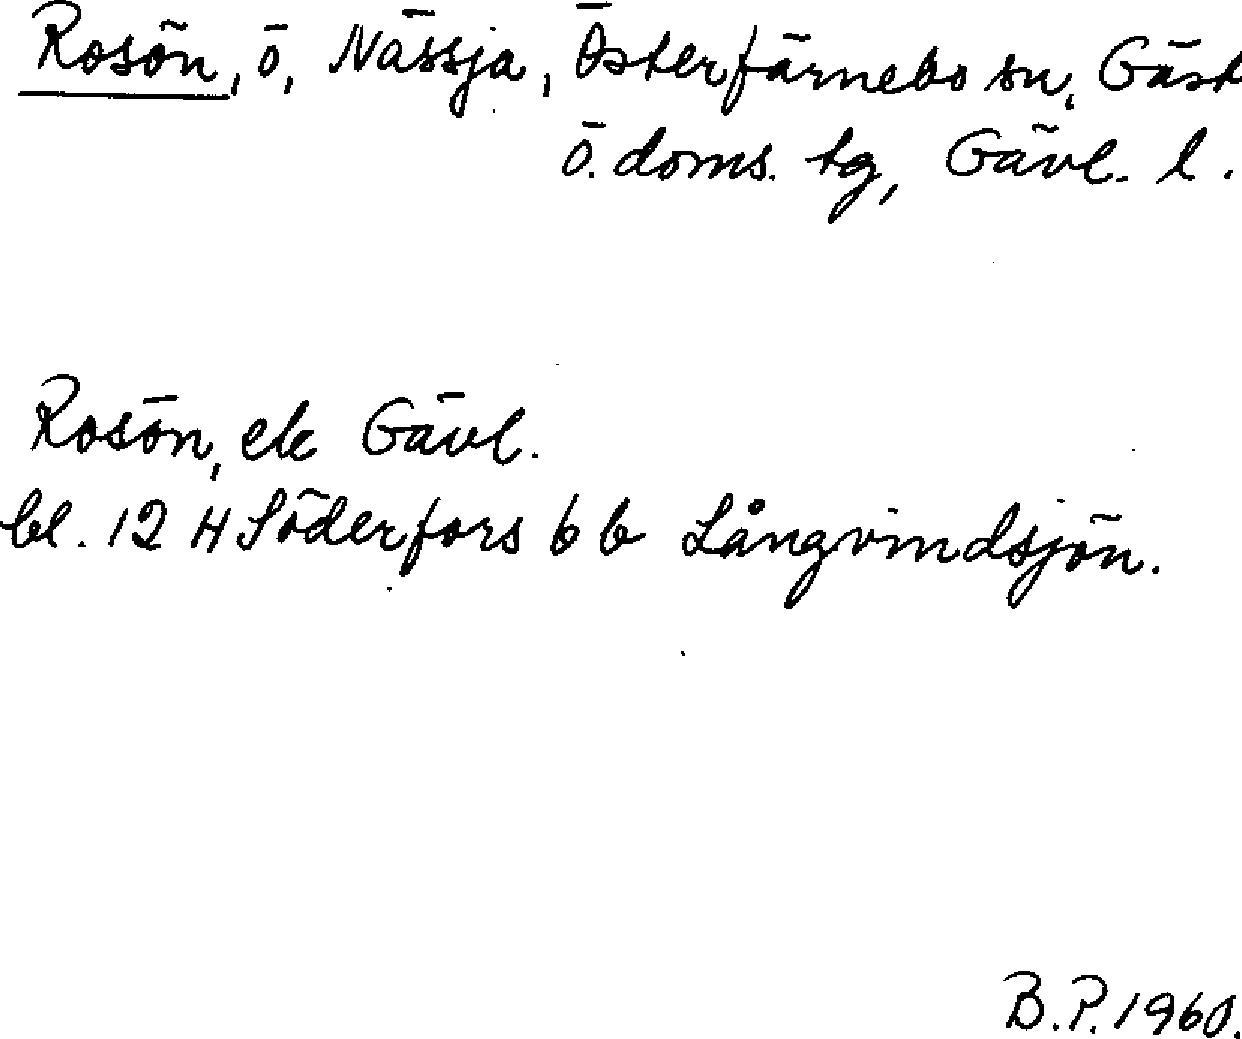 Rosön, ö, Nässja, Österfärnebo sn, Gäst
ö. doms. tg, Gävl. l.
Rosön, ek Gävl.
bl. 12 H Söderfors 6 b Långvindsjön.
B.P. 1960.